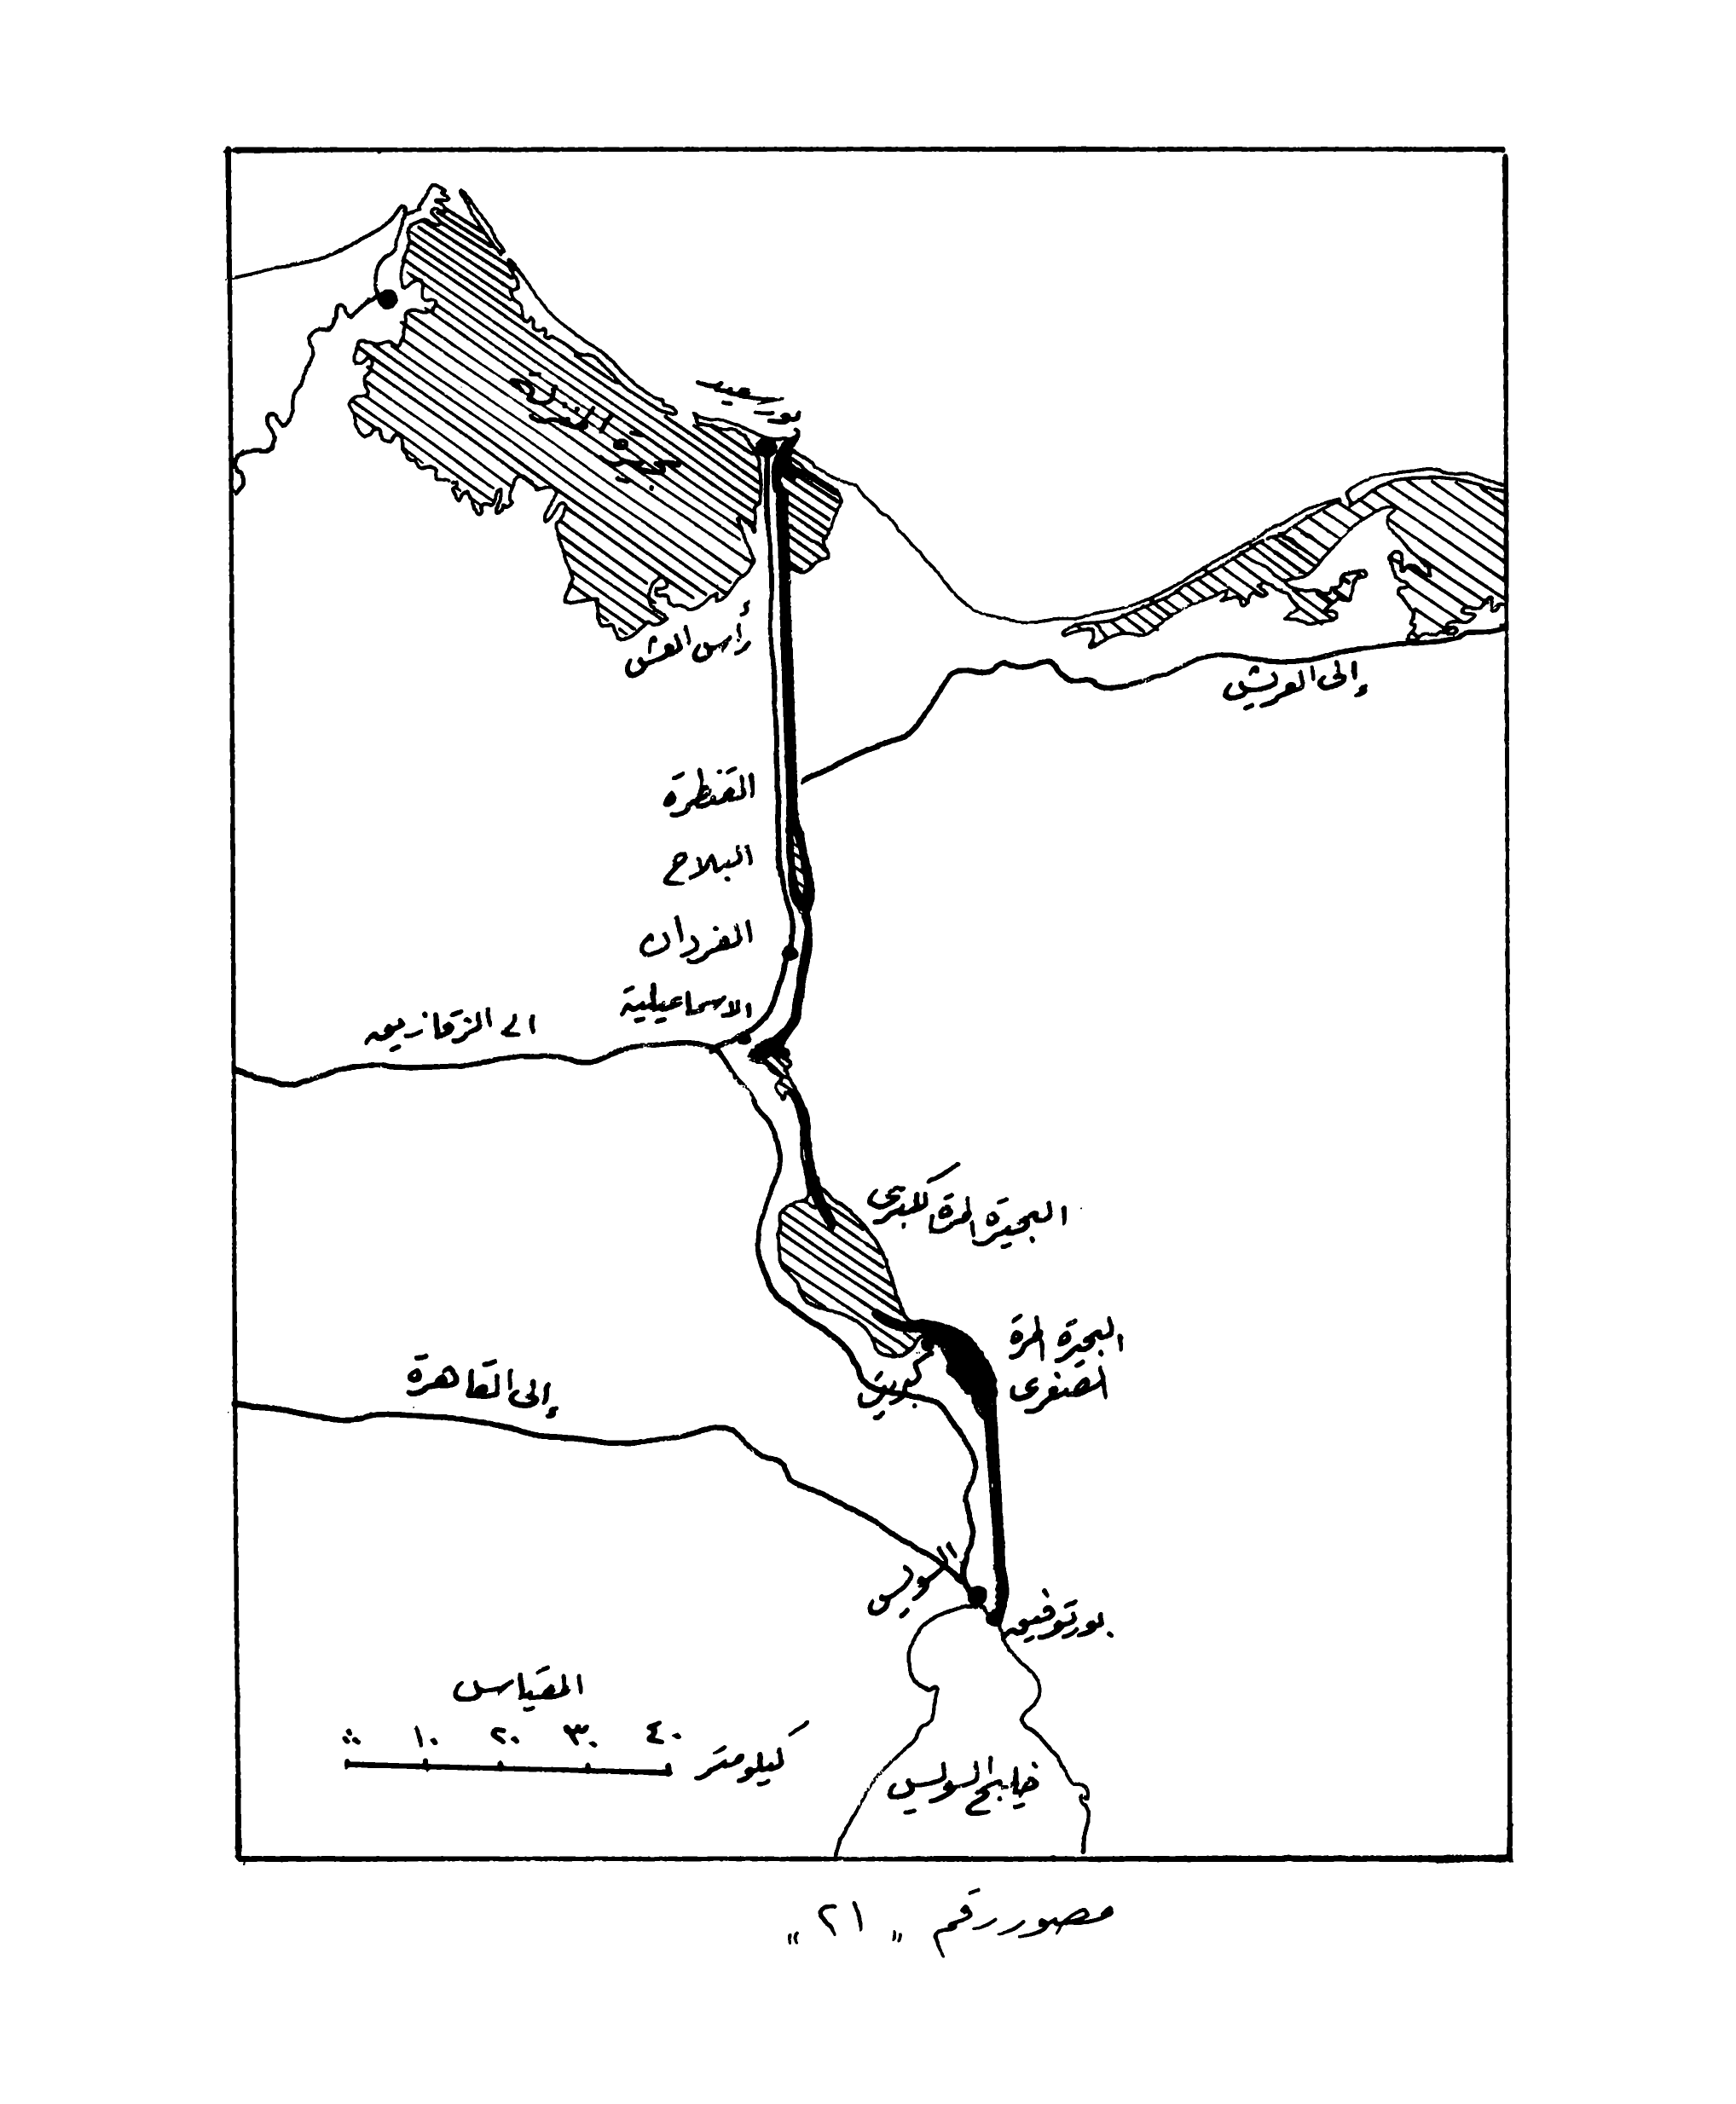 بورسعيد
بحيرة المنزلة
رأس العش
إلى العريش
القنطرة
البلاح
الفردان
الاسماعيلية
الى الزقازيق
البحيرة المرة الكبرى
البحيرة المرة
الصغرى
كبريت
إلى القاهرة
السويس
بورتوفيق
المقياس
٠ ١٠ ٢٠ ٣٠ ٤٠
كيلومتر
خليج السويس
مصور رقم "٢١"